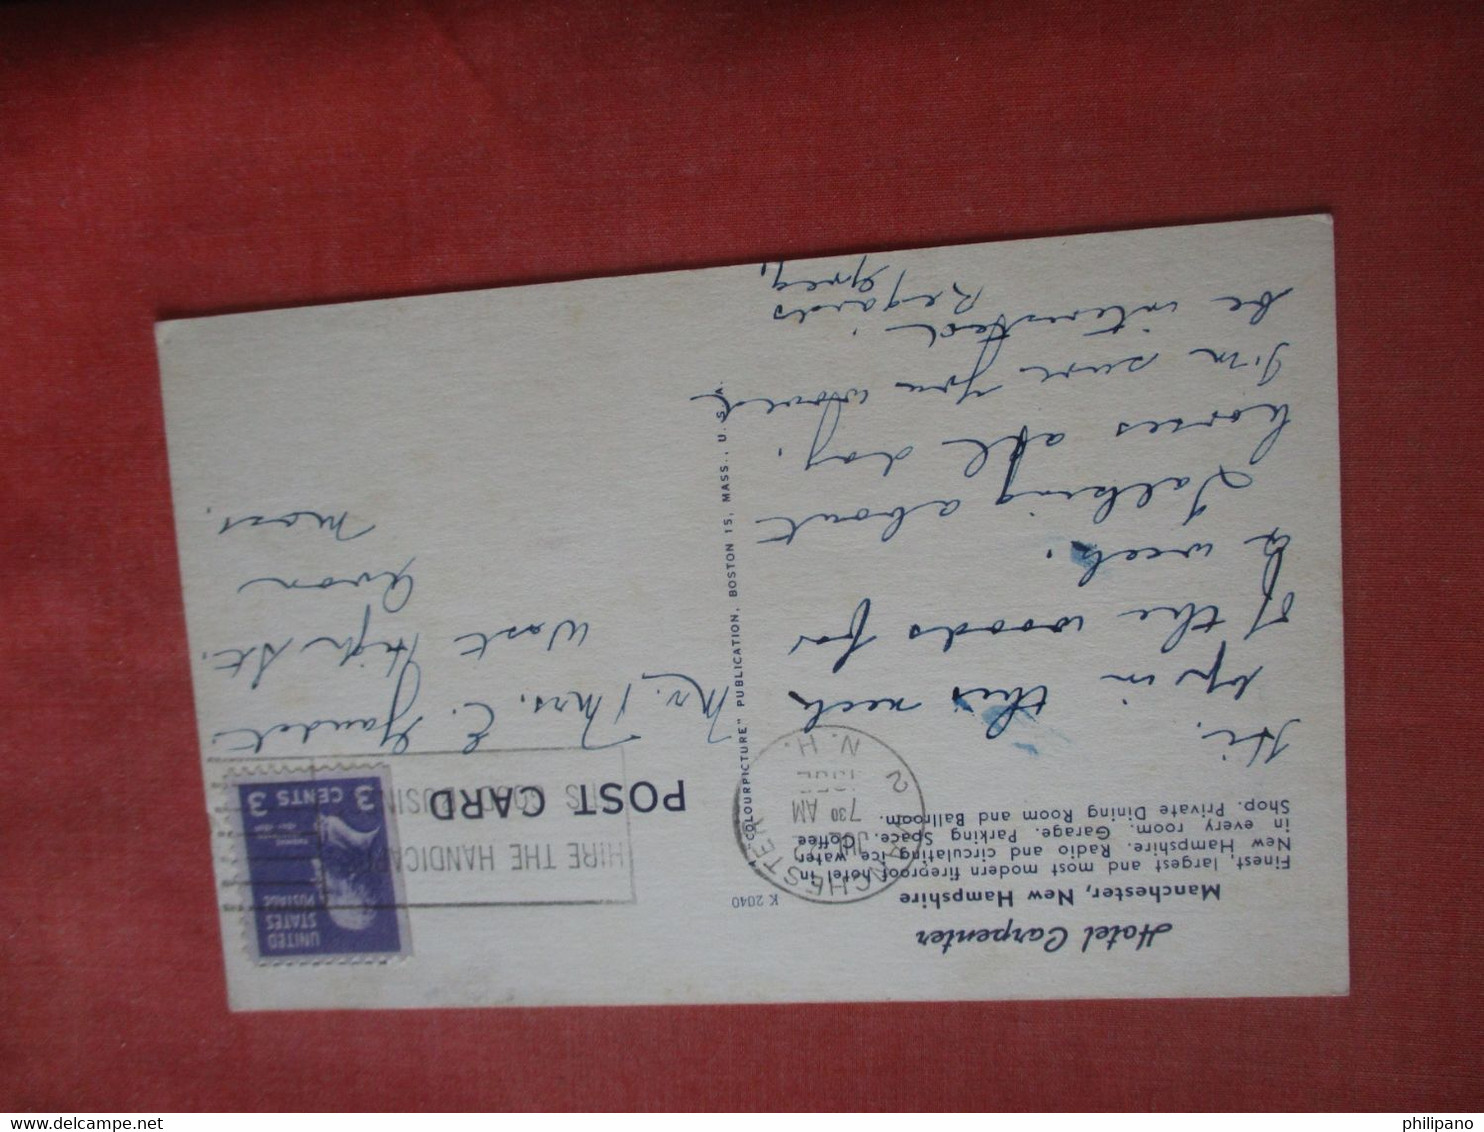 Hotel Carpenter
Manchester, New Hampshire
Finest, largest and most modern fireproof hotel in
New Hampshire. Radio and circulating ice water
in every room. Garage. Parking Space. Coffee
Shop. Private Dining Room and Ballroom.
K 2040
MANCHESTER
JUL 22
7 30 AM
2
N. H.
HIRE THE HANDICAPPED
UNITED
STATES
POSTAGE
3 CENTS 3
POST CARD
"COLOURPICTURE" PUBLICATION, BOSTON 15, MASS., U. S. A.
Hi,
up in this neck
of the woods for
a week.
Talking about
horses all day.
I'm sure you would
be interested
Regards
Greg
Mr. & Mrs. E. Gaudet
West High St.
Avon
Mass.
philipano